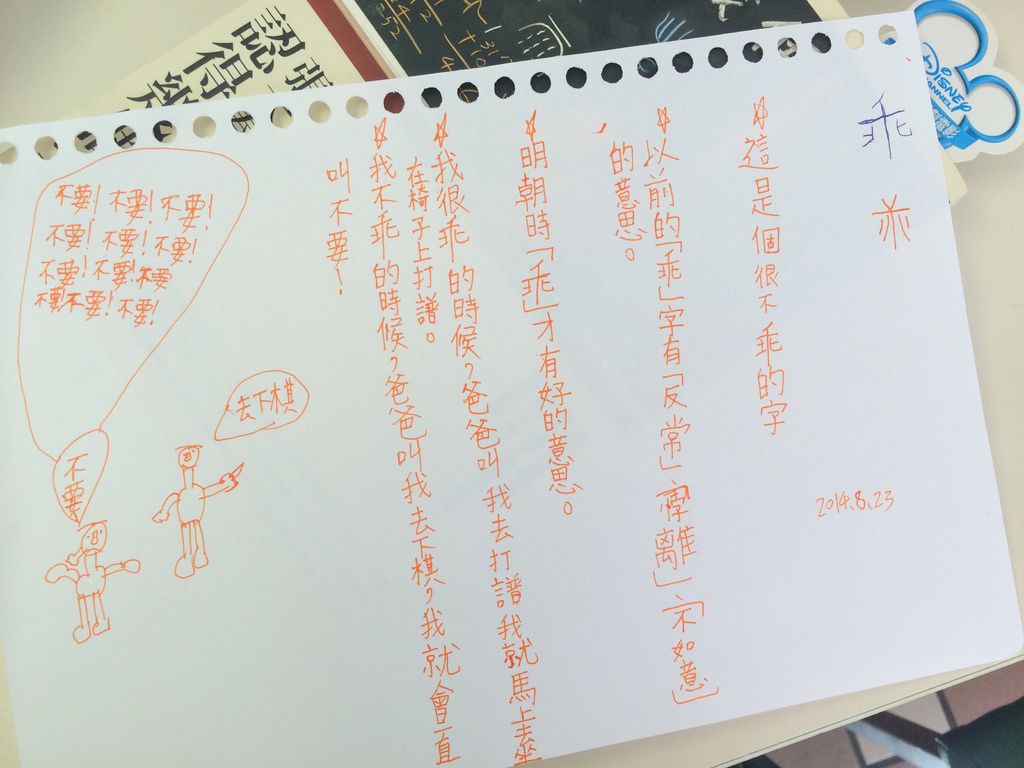 乖
☆這是個很不乖的字
☆以前的「乖」字有「反常」「乖離」「不如意」
的意思。
☆明朝時「乖」才有好的意思。
☆我很乖的時候,爸爸叫我去打譜我就馬上坐
在椅子上打譜。
☆我不乖的時候,爸爸叫我去下棋,我就會一直
叫不要!
2014.8.23
去下棋
不要
不要!不要!不要!
不要!不要!不要!
不要!不要!不要
不要!不要!不要!
認得
DISNEY
CHANNEL